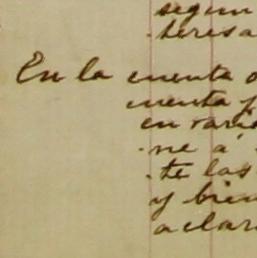 segun
teresa
En la cuenta
cuenta
en varie
ne á
te las
y bien
aclar